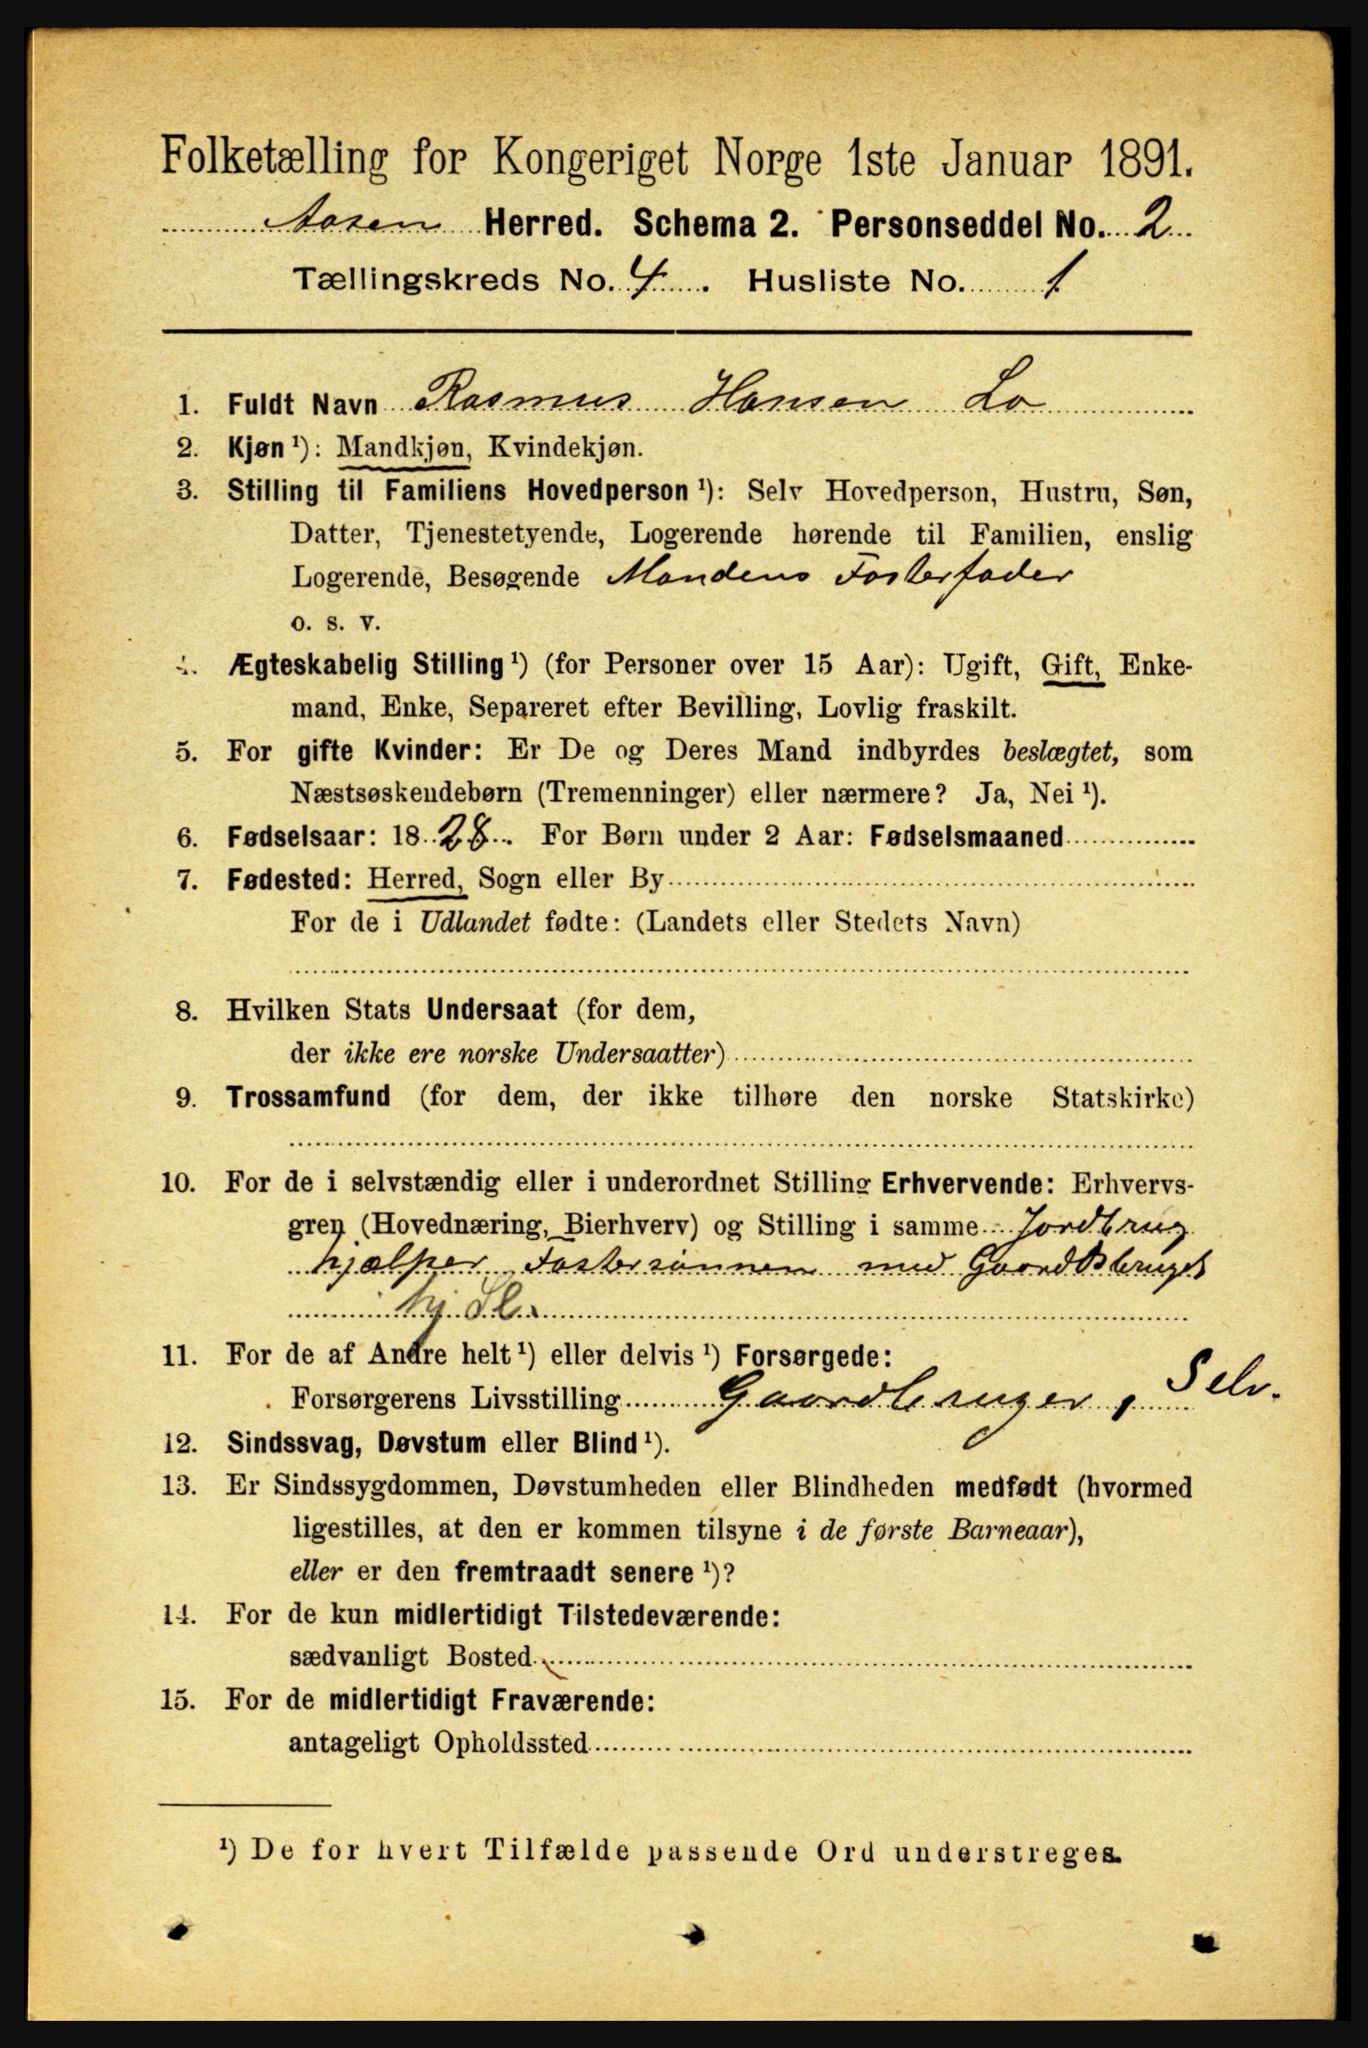 Folketælling for Kongeriget Norge 1ste Januar 1891.
Aasen Herred. Schema 2. Personseddel No. 2
Tællingskreds No. 4. Husliste No. 1
1. Fuldt Navn Rasmus Hansen Lo
2. Kjøn ¹): Mandkjøn, Kvindekjøn.
3. Stilling til Familiens Hovedperson ¹): Selv Hovedperson, Hustru, Søn,
Datter, Tjenestetyende, Logerende hørende til Familien, enslig
Logerende, Besøgende Mandens Fosterfader
o. s. v.
4. Ægteskabelig Stilling ¹) (for Personer over 15 Aar): Ugift, Gift, Enke-
mand, Enke, Separeret efter Bevilling, Lovlig fraskilt.
5. For gifte Kvinder: Er De og Deres Mand indbyrdes beslægtet, som
Næstsøskendebørn (Tremenninger) eller nærmere? Ja, Nei ¹).
6. Fødselsaar: 18 28. For Børn under 2 Aar: Fødselsmaaned
7. Fødested: Herred, Sogn eller By
For de i Udlandet fødte: (Landets eller Stedets Navn)
8. Hvilken Stats Undersaat (for dem,
der ikke ere norske Undersaatter)
9. Trossamfund (for dem, der ikke tilhøre den norske Statskirke)
10. For de i selvstændig eller i underordnet Stilling Erhvervende: Erhvervs-
gren (Hovednæring, Bierhverv) og Stilling i samme Jordbrug
hjælper Fostersønnen med Gaardsbruget
hj Sl.
11. For de af Andre helt ¹) eller delvis ¹) Forsørgede:
Forsørgerens Livsstilling Gaardbruger, Selv.
12. Sindssvag, Døvstum eller Blind ¹).
13. Er Sindssygdommen, Døvstumheden eller Blindheden medfødt (hvormed
ligestilles, at den er kommen tilsyne i de første Barneaar),
eller er den fremtraadt senere ¹)?
14. For de kun midlertidigt Tilstedeværende:
sædvanligt Bosted
15. For de midlertidigt Fraværende:
antageligt Opholdssted
¹) De for hvert Tilfælde passende Ord understreges.